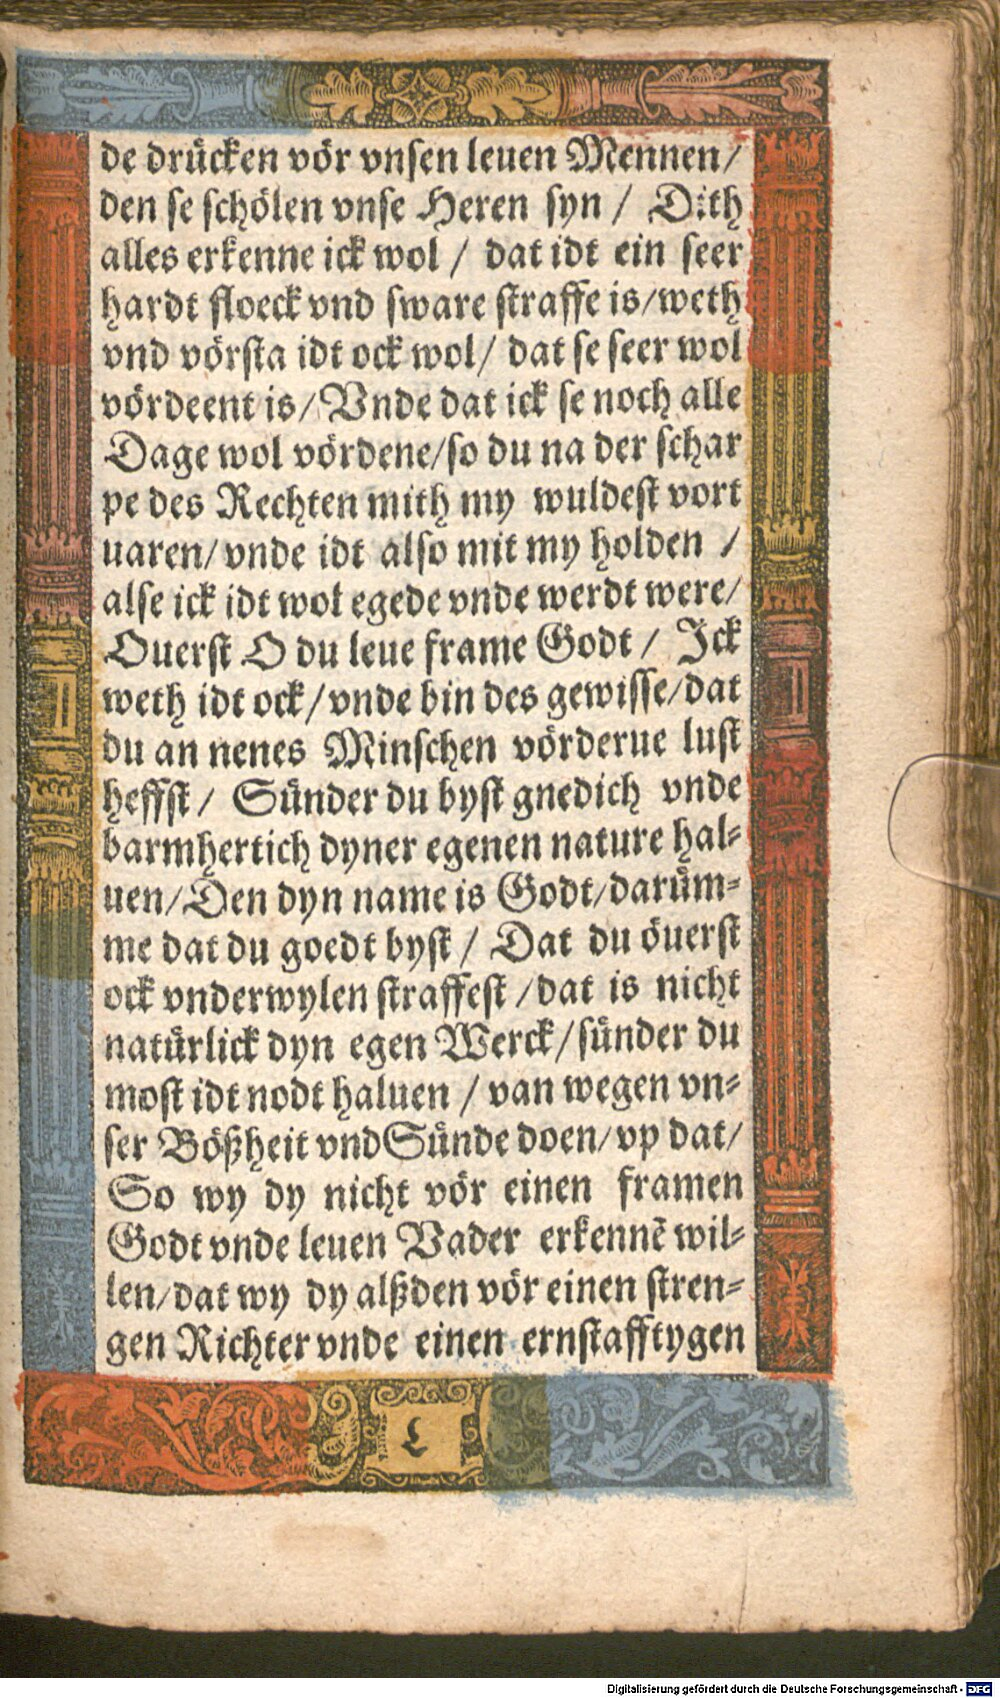 de drücken vör vnsen leuen Mennen/
den se schölen vnse Heren syn / Dith
alles erkenne ick wol / dat idt ein seer
hardt floeck vnd sware straffe is/weth
vnd vörsta idt ock wol/ dat se seer wol
vördeent is/Vnde dat ick se noch alle
Dage wol vördene/so du na der schar
pe des Rechten mith my wuldest vort
uaren/vnde idt also mit my holden /
alse ick idt wol egede vnde werdt were/
Ouerst O du leue frame Godt / Ick
weth idt ock/vnde bin des gewisse/dat
du an nenes Minschen vörderue lust
heffst/ Sünder du byst gnedich vnde
barmhertich dyner egenen nature hal-
uen/Den dyn name is Godt/darüm-
me dat du goedt byst/ Dat du öuerst
ock vnderwylen straffest /dat is nicht
natürlick dyn egen Werck/sünder du
most idt nodt haluen / van wegen vn-
ser Bößheit vnd Sünde doen/vp dat/
So wy dy nicht vör einen framen
Godt vnde leuen Vader erkennē wil-
len/dat wy dy alßden vör einen stren-
gen Richter vnde einen ernstafftygen
L
Digitalisierung gefördert durch die Deutsche Forschungsgemeinschaft - DFG